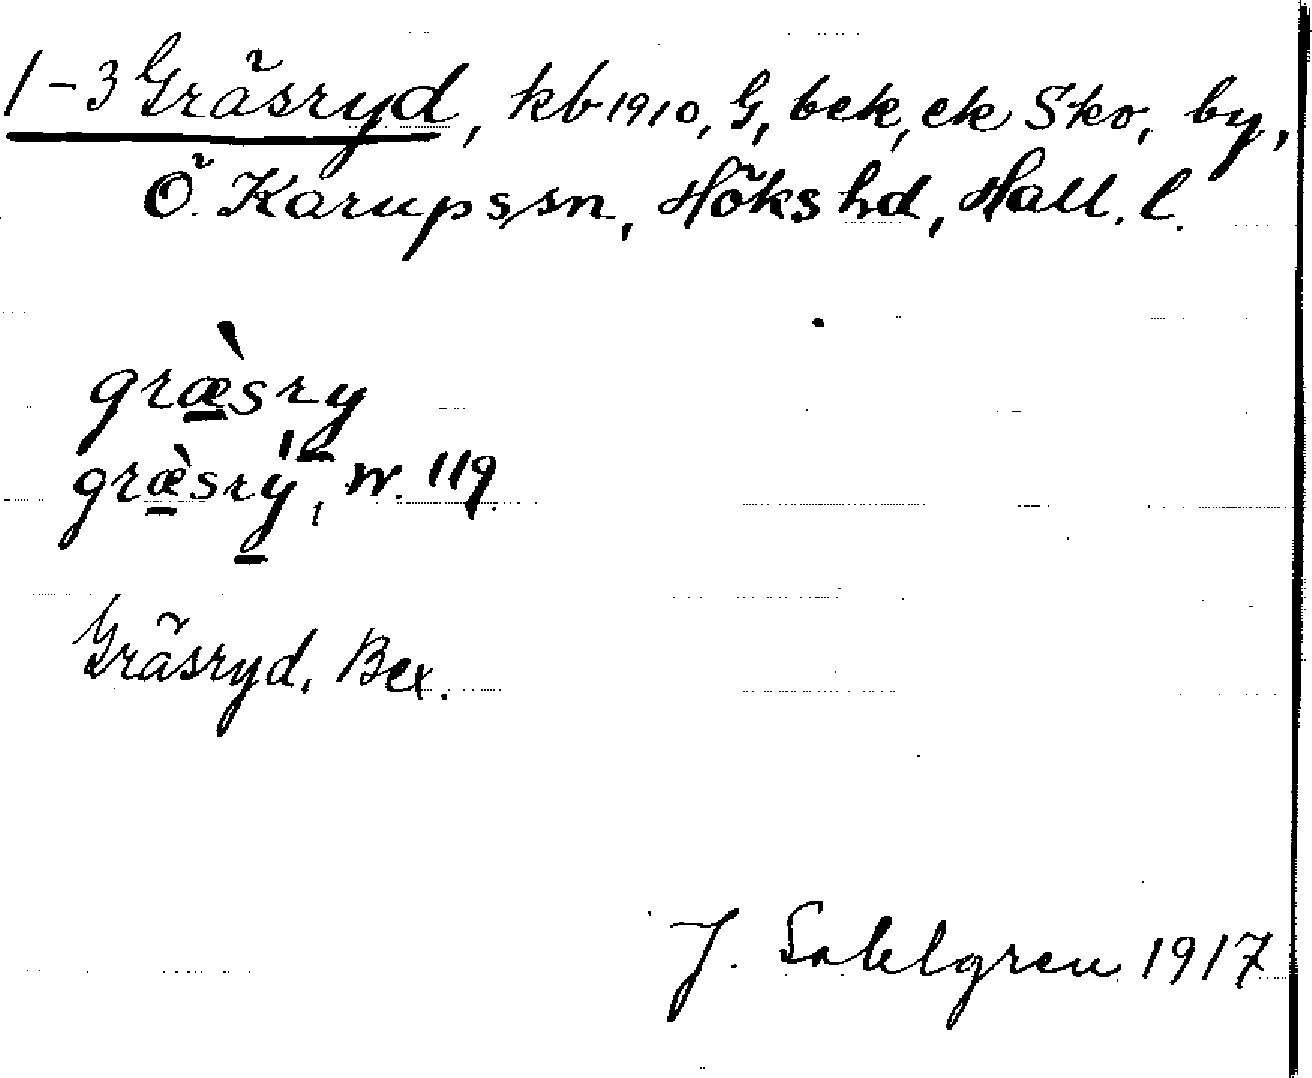 1-3 Gräsryd, kb 1910, G, bek, ek Sko, by,
Ö. Karups sn, Höks hd, Hall. l.
græ̀sry
græ̀srý, N. 119.
Gräsryd. Bex.
J. Sahlgren 1917